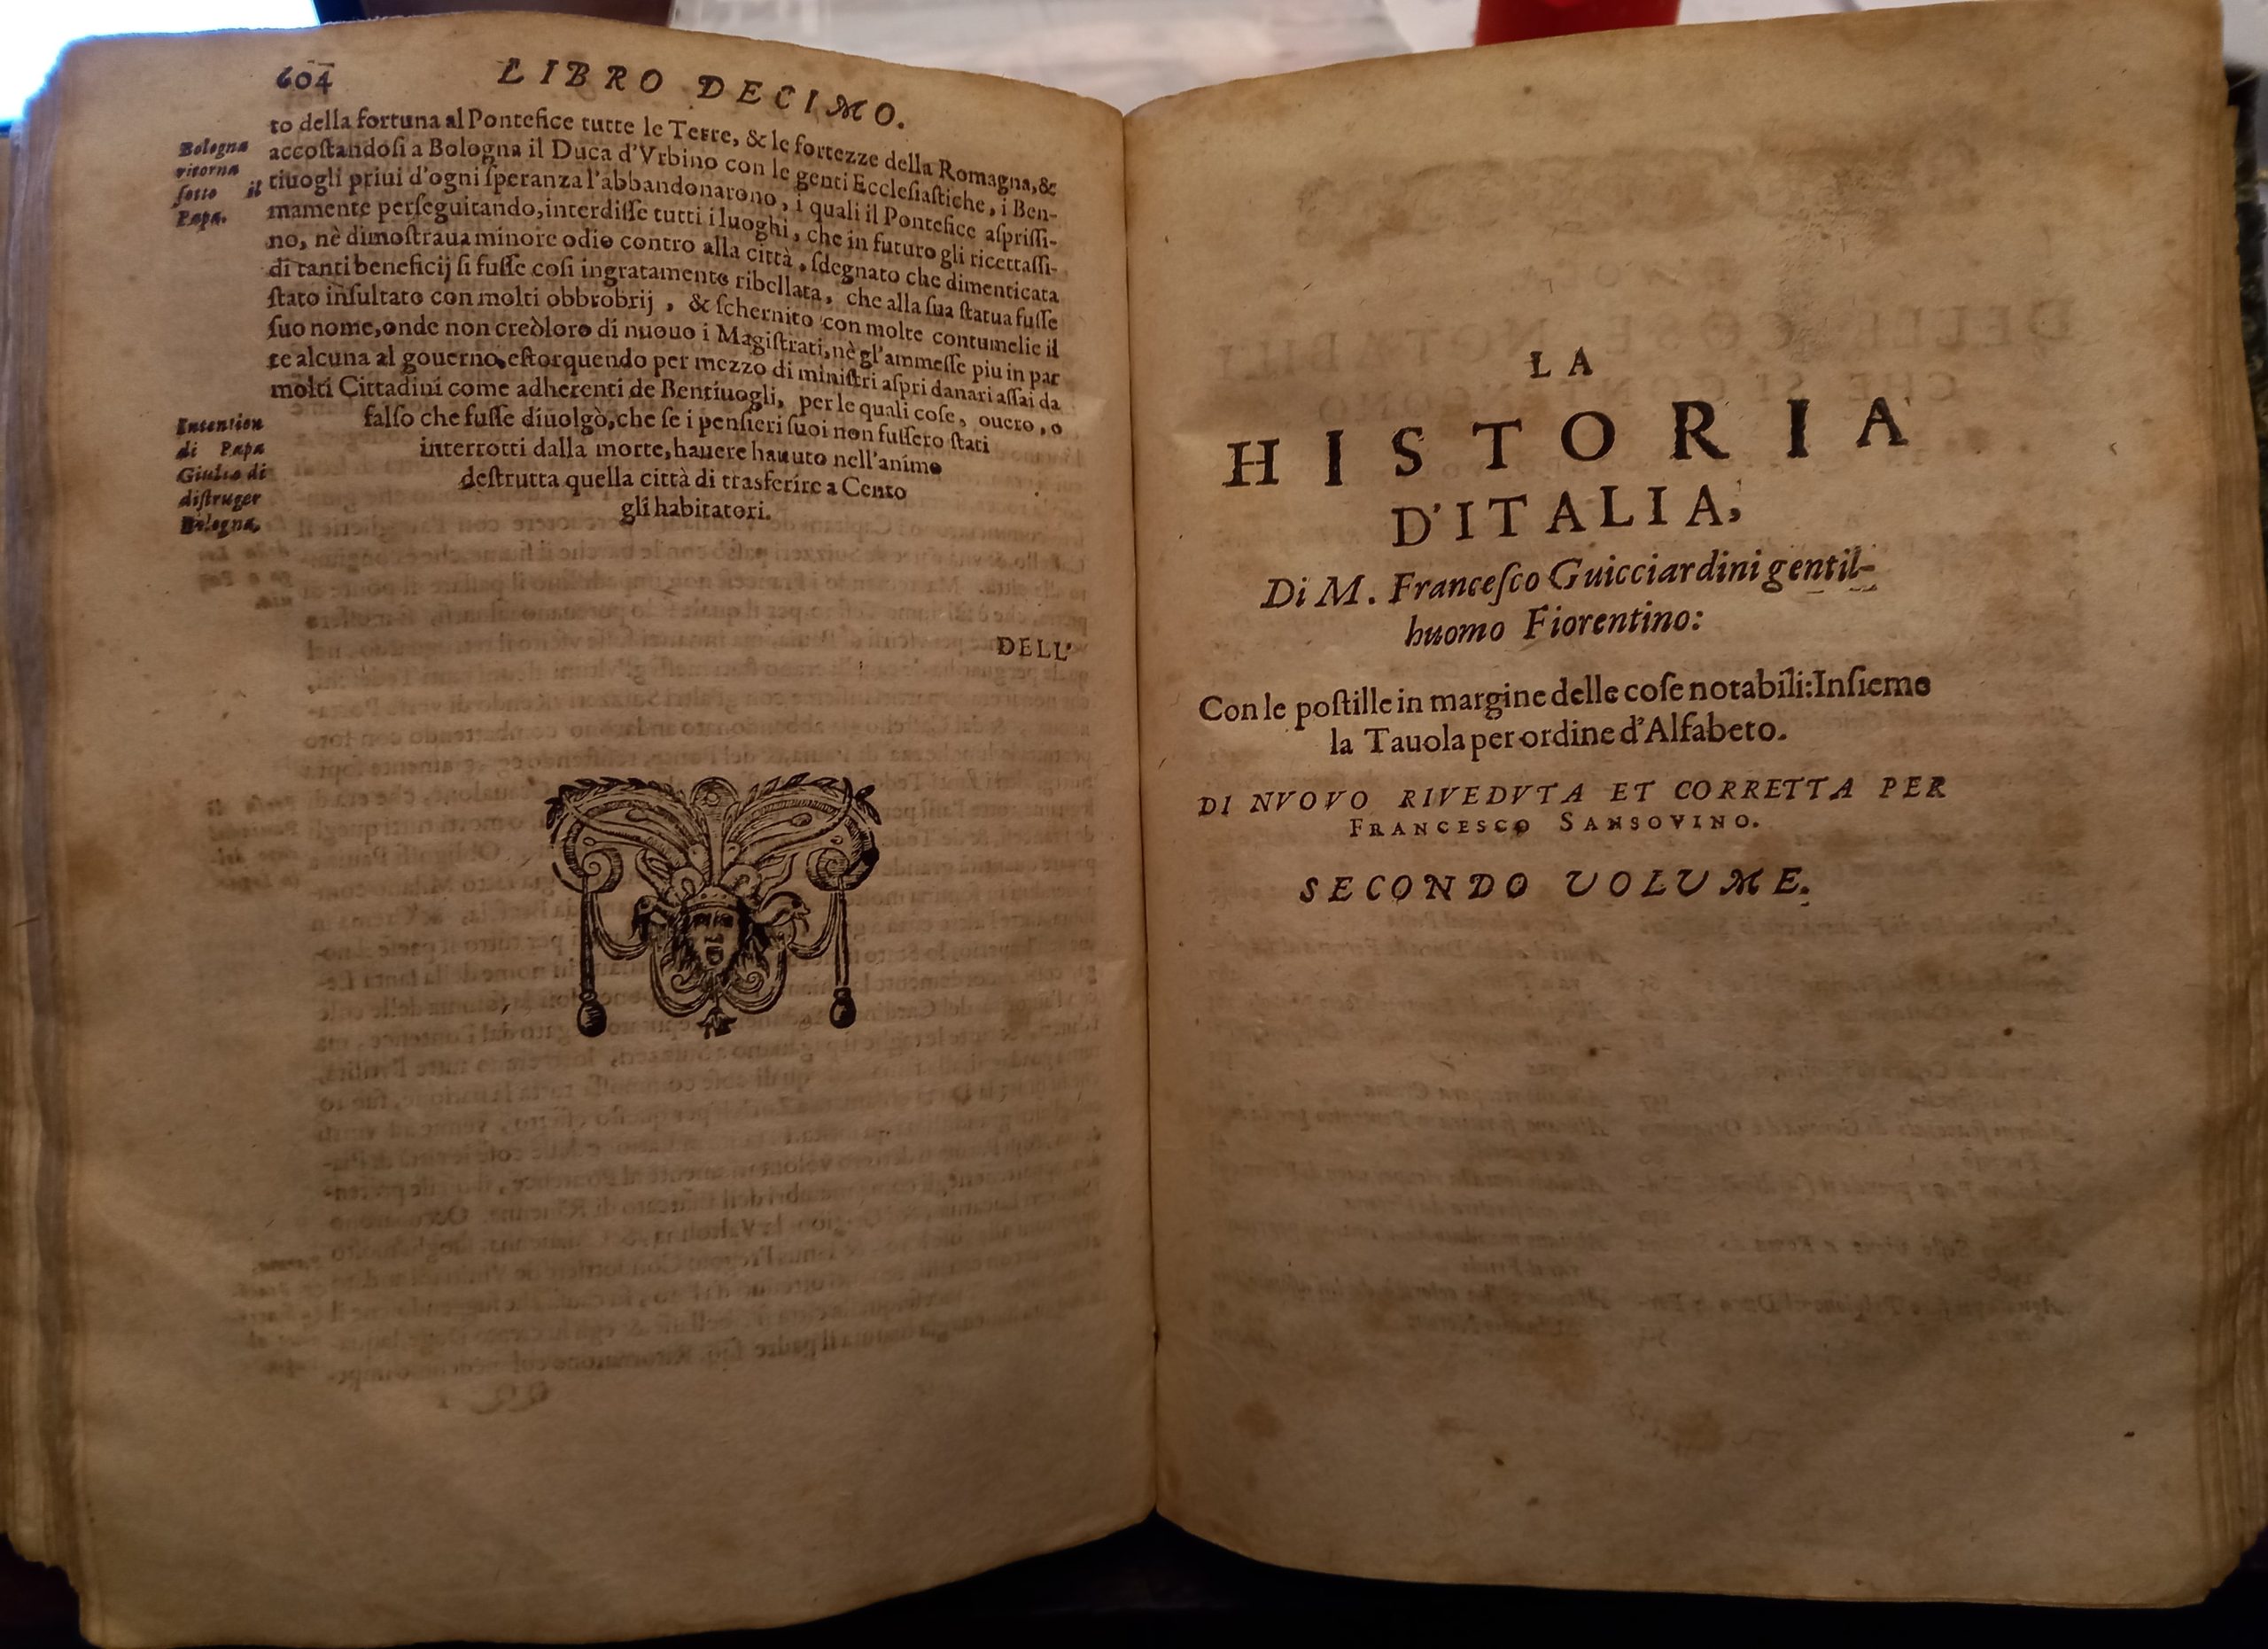 604
LIBRO DECIMO.
to della fortuna al Pontefice tutte le Terre, & le fortezze della Romagna, &
accoſtandoſi a Bologna il Duca d'Vrbino con le genti Eccleſiaſtiche, i Ben-
tiuogli priui d'ogni ſperanza l'abbandonarono, i quali il Pontefice aſpriſſi-
mamente perſeguitando, interdiſſe tutti i luoghi, che in futuro gli ricettaſſi-
no, nè dimoſtraua minore odio contro alla città, ſdegnato che dimenticata
di tanti beneficij ſi fuſſe coſi ingratamente ribellata, che alla ſua ſtatua fuſſe
ſtato inſultato con molti obbrobrij, & ſchernito con molte contumelie il
ſuo nome, onde non creò loro di nuouo i Magiſtrati, nè gl'ammeſſe piu in par
te alcuna al gouerno, eſtorquendo per mezzo di miniſtri aſpri danari aſſai da
molti Cittadini come adherenti de Bentiuogli, per le quali coſe, ouero, o
falſo che fuſſe diuolgò, che ſe i penſieri ſuoi non fuſſero ſtati
interrotti dalla morte, hauere hauuto nell'animo
deſtrutta quella città di trasferire a Cento
gli habitatori.
Bologna
ritorna
ſotto il
Papa.
Intention
di Papa
Giulio di
diſtruger
Bologna.
DELL'
LA
HISTORIA
D'ITALIA,
Di M. Franceſco Guicciardini gentil-
huomo Fiorentino:
Con le poſtille in margine delle coſe notabili: Inſieme
la Tauola per ordine d'Alfabeto.
DI NVOVO RIVEDVTA ET CORRETTA PER
FRANCESCO SANSOVINO.
SECONDO VOLVME.